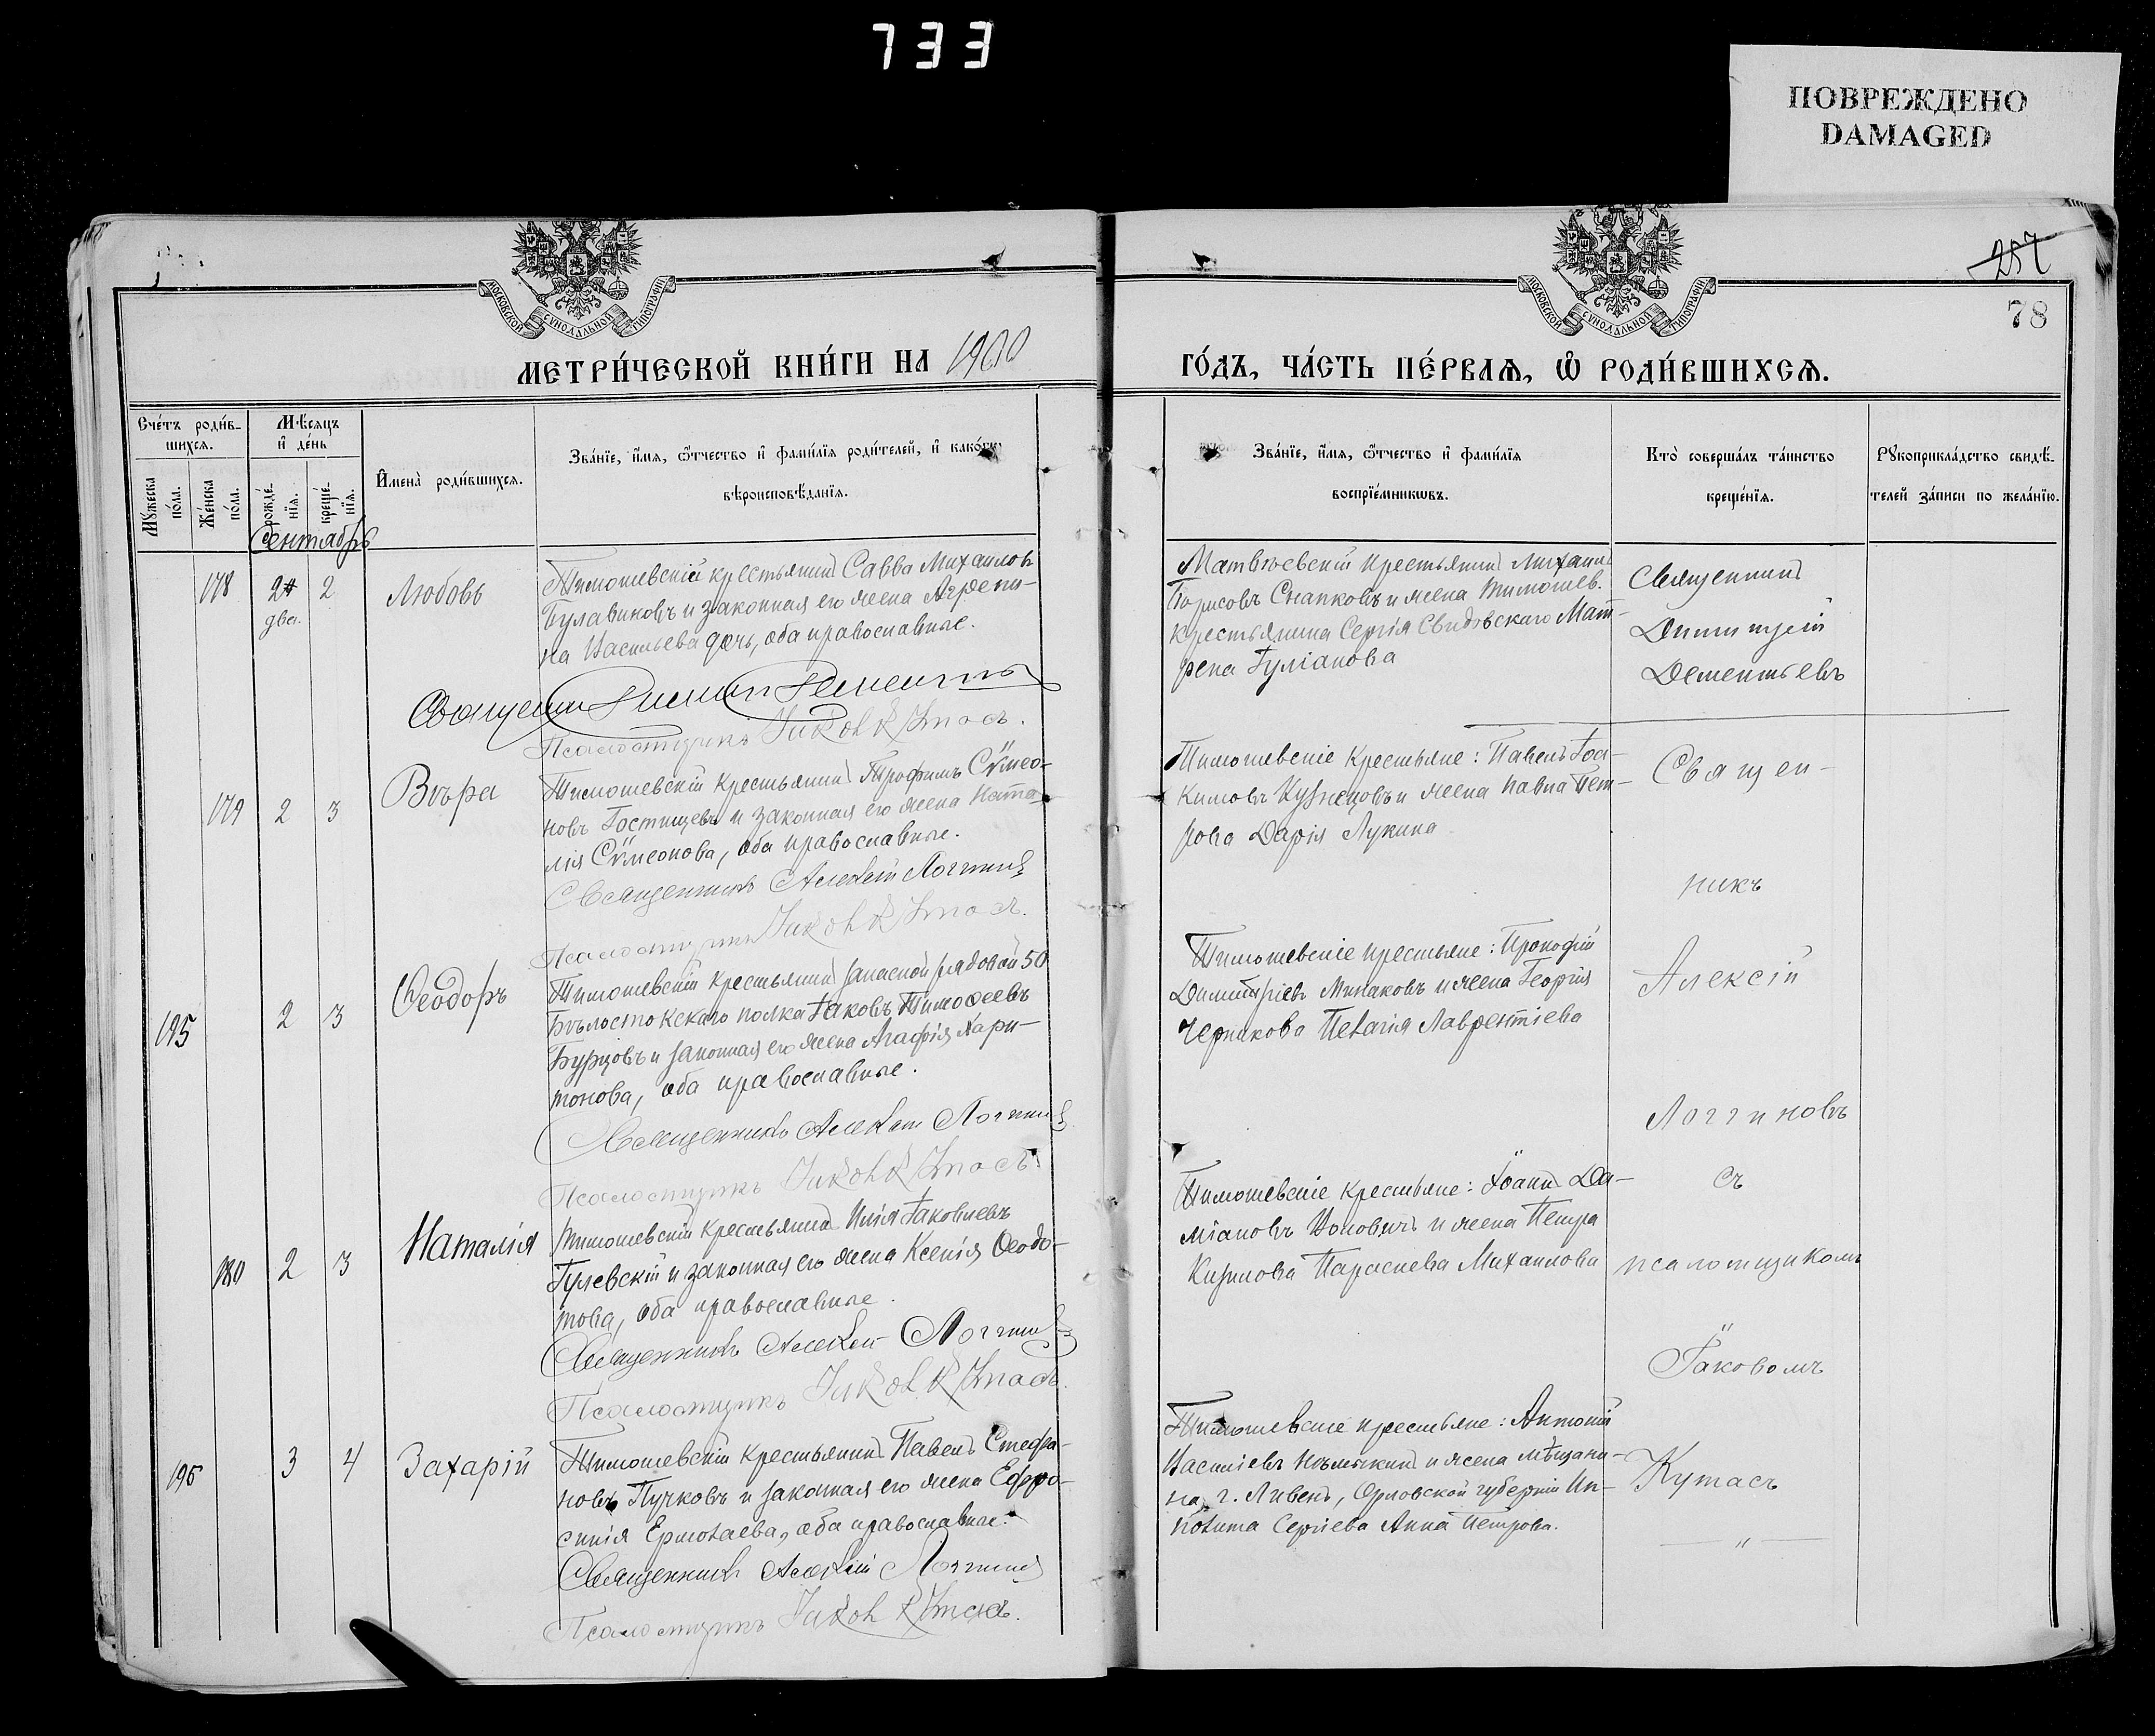 733
ПОВРЕЖДЕНО
DAMAGED
МОСКОВСКОЙ СѴНОДАЛЬНОЙ ТИПОГРАФІИ
МОСКОВСКОЙ СѴНОДАЛЬНОЙ ТИПОГРАФІИ
257
78
МЕТРИ́ЧЕСКОЙ КНИ́ГИ НА 1900
ГО́ДЪ, ЧА́СТЬ ПЕ́РВАѦ, Ѡ҆ РОДИ́ВШИХСѦ.
Сче́тъ роди́в-
шихся.
Мѣ́сяцъ
и҆ де́нь
Мꙋ́жеска по́ла.
Же́нска по́ла.
рожде́-нїя.
креще́-нїя.
И҆мена̀ роди́вшихся.
Зва́нїе, и҆́мя, ѻ҆́тчество и҆ фами́лїя роди́телей, и҆ како́гѡ
вѣроисповѣ́данїя.
Зва́нїе, и҆́мя, ѻ҆́тчество и҆ фами́лїя
воспрїе́мникѡвъ.
Кто̀ соверша́лъ та́инство
креще́нїя.
Рꙋкоприкла́дство свидѣ́-
телей за́писи по жела́нїю.
Сентябрь
178 2 2 Любовь
два.
Тимошевскій крестьянинъ Савва Михаиловъ
Булавиновъ и законная его жена Агрепи-
на Васильева дочь, оба православные.
Матвѣевскій крестьянинъ Михаилъ
Борисовъ Снапковъ и жена Тимошев.
крестьянина Сергія Свидовскаго Мат-
рена Іуліанова
Священникъ
Димитрій
Дементьевъ
Псаломщикъ Іаковъ Кутасъ.
179 2 3 Вѣра
Тимошевскій крестьянинъ Трофимъ Сѵмео-
новъ Гостищевъ и законная его жена Ната-
лія Сѵмеонова, оба православные.
Священникъ Алексій Логгинов
Псаломщикъ Іаковъ Кутасъ.
Тимошевскіе крестьяне: Павелъ Іоа-
кимовъ Кузнецовъ и жена Павла Пет-
рова Дарія Лукина
Священ-
никъ
195 2 3 Ѳеодоръ
Тимошевскій крестьянинъ запасной рядовой 50
Бѣлостокскаго полка Іаковъ Тимоѳеевъ
Бурцовъ и законная его жена Агафія Хари-
тонова, оба православные.
Священникъ Алексій Логгинов
Псаломщикъ Іаковъ Кутасъ.
Тимошевскіе крестьяне: Прокофій
Димитріевъ Минаковъ и жена Георгія
Черникова Пелагія Лаврентіева
Алексій
Логгиновъ
180 2 3 Наталія
Тимошевскій крестьянинъ Илія Іаковлевъ
Гулевскій и законная его жена Ксенія Ѳеодо-
това, оба православные.
Священникъ Алексій Логгинов
Псаломщикъ Іаковъ Кутасъ.
Тимошевскіе крестьяне: Іоаннъ Да-
міановъ Поповичъ и жена Петра
Кирилова Параскева Михаилова
съ
псаломщикомъ
Іаковомъ
196 3 4 Захарій
Тимошевскій крестьянинъ Павелъ Стефа-
новъ Пучковъ и законная его жена Евфро-
синія Ермолаева, оба православные.
Священникъ Алексій Логгинов
Псаломщикъ Іаковъ Кутасъ.
Тимошевскіе крестьяне: Антоній
Василіевъ и жена мѣщани-
на г. Ливенъ, Орловской губерніи Ип-
полита Сергіева Анна Петрова.
Кутасъ